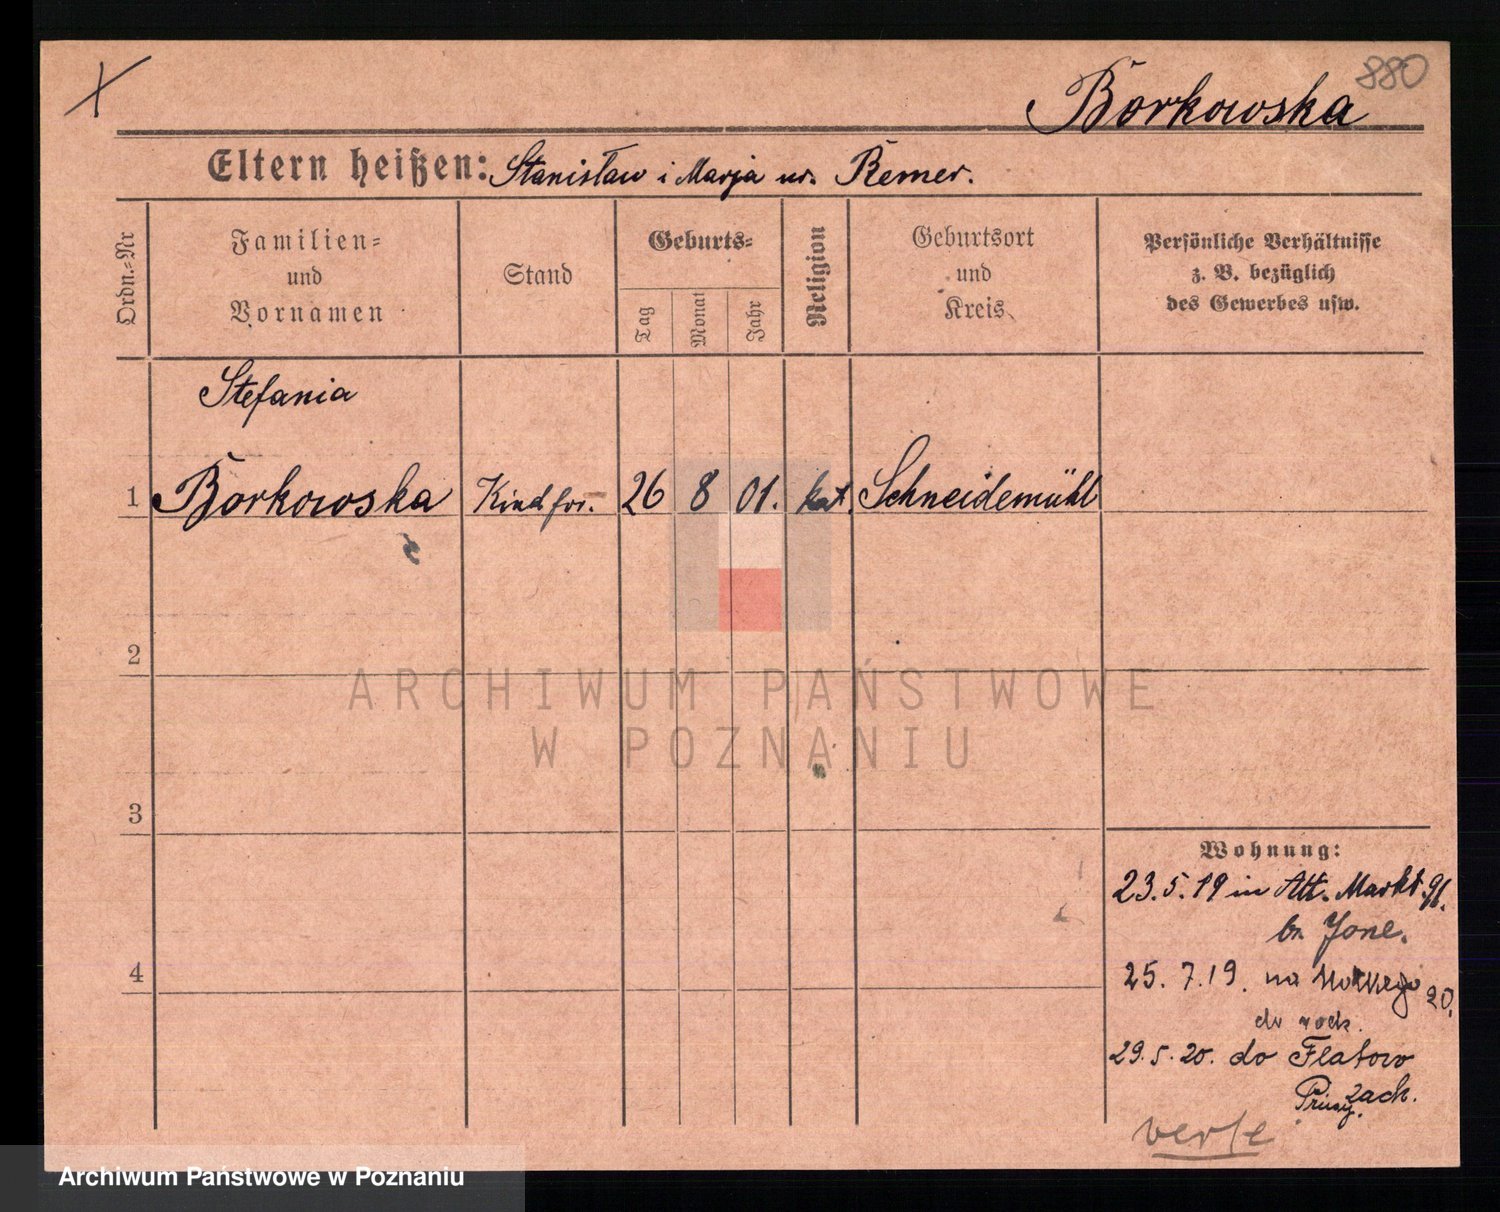 880
Borkowska
Eltern heißen: Stanisław i Marja ur. Remer.
Ordn.-Nr
Familien- und Vornamen
Stand
Geburts-
Tag
Monat
Jahr
Religion
Geburtsort und Kreis
Persönliche Verhältnisse z. B. bezüglich des Gewerbes usw.
Stefania
1 Borkowska Kindfr. 26 8 01. kat. Schneidemühl
2
3
4
Wohnung:
23.5.19 in Alt. Markt 91.
25.7.19. na 20.
29.5.20. do Flatow
Prusy zach.
verte
ARCHIWUM PAŃSTWOWE
W POZNANIU
Archiwum Państwowe w Poznaniu